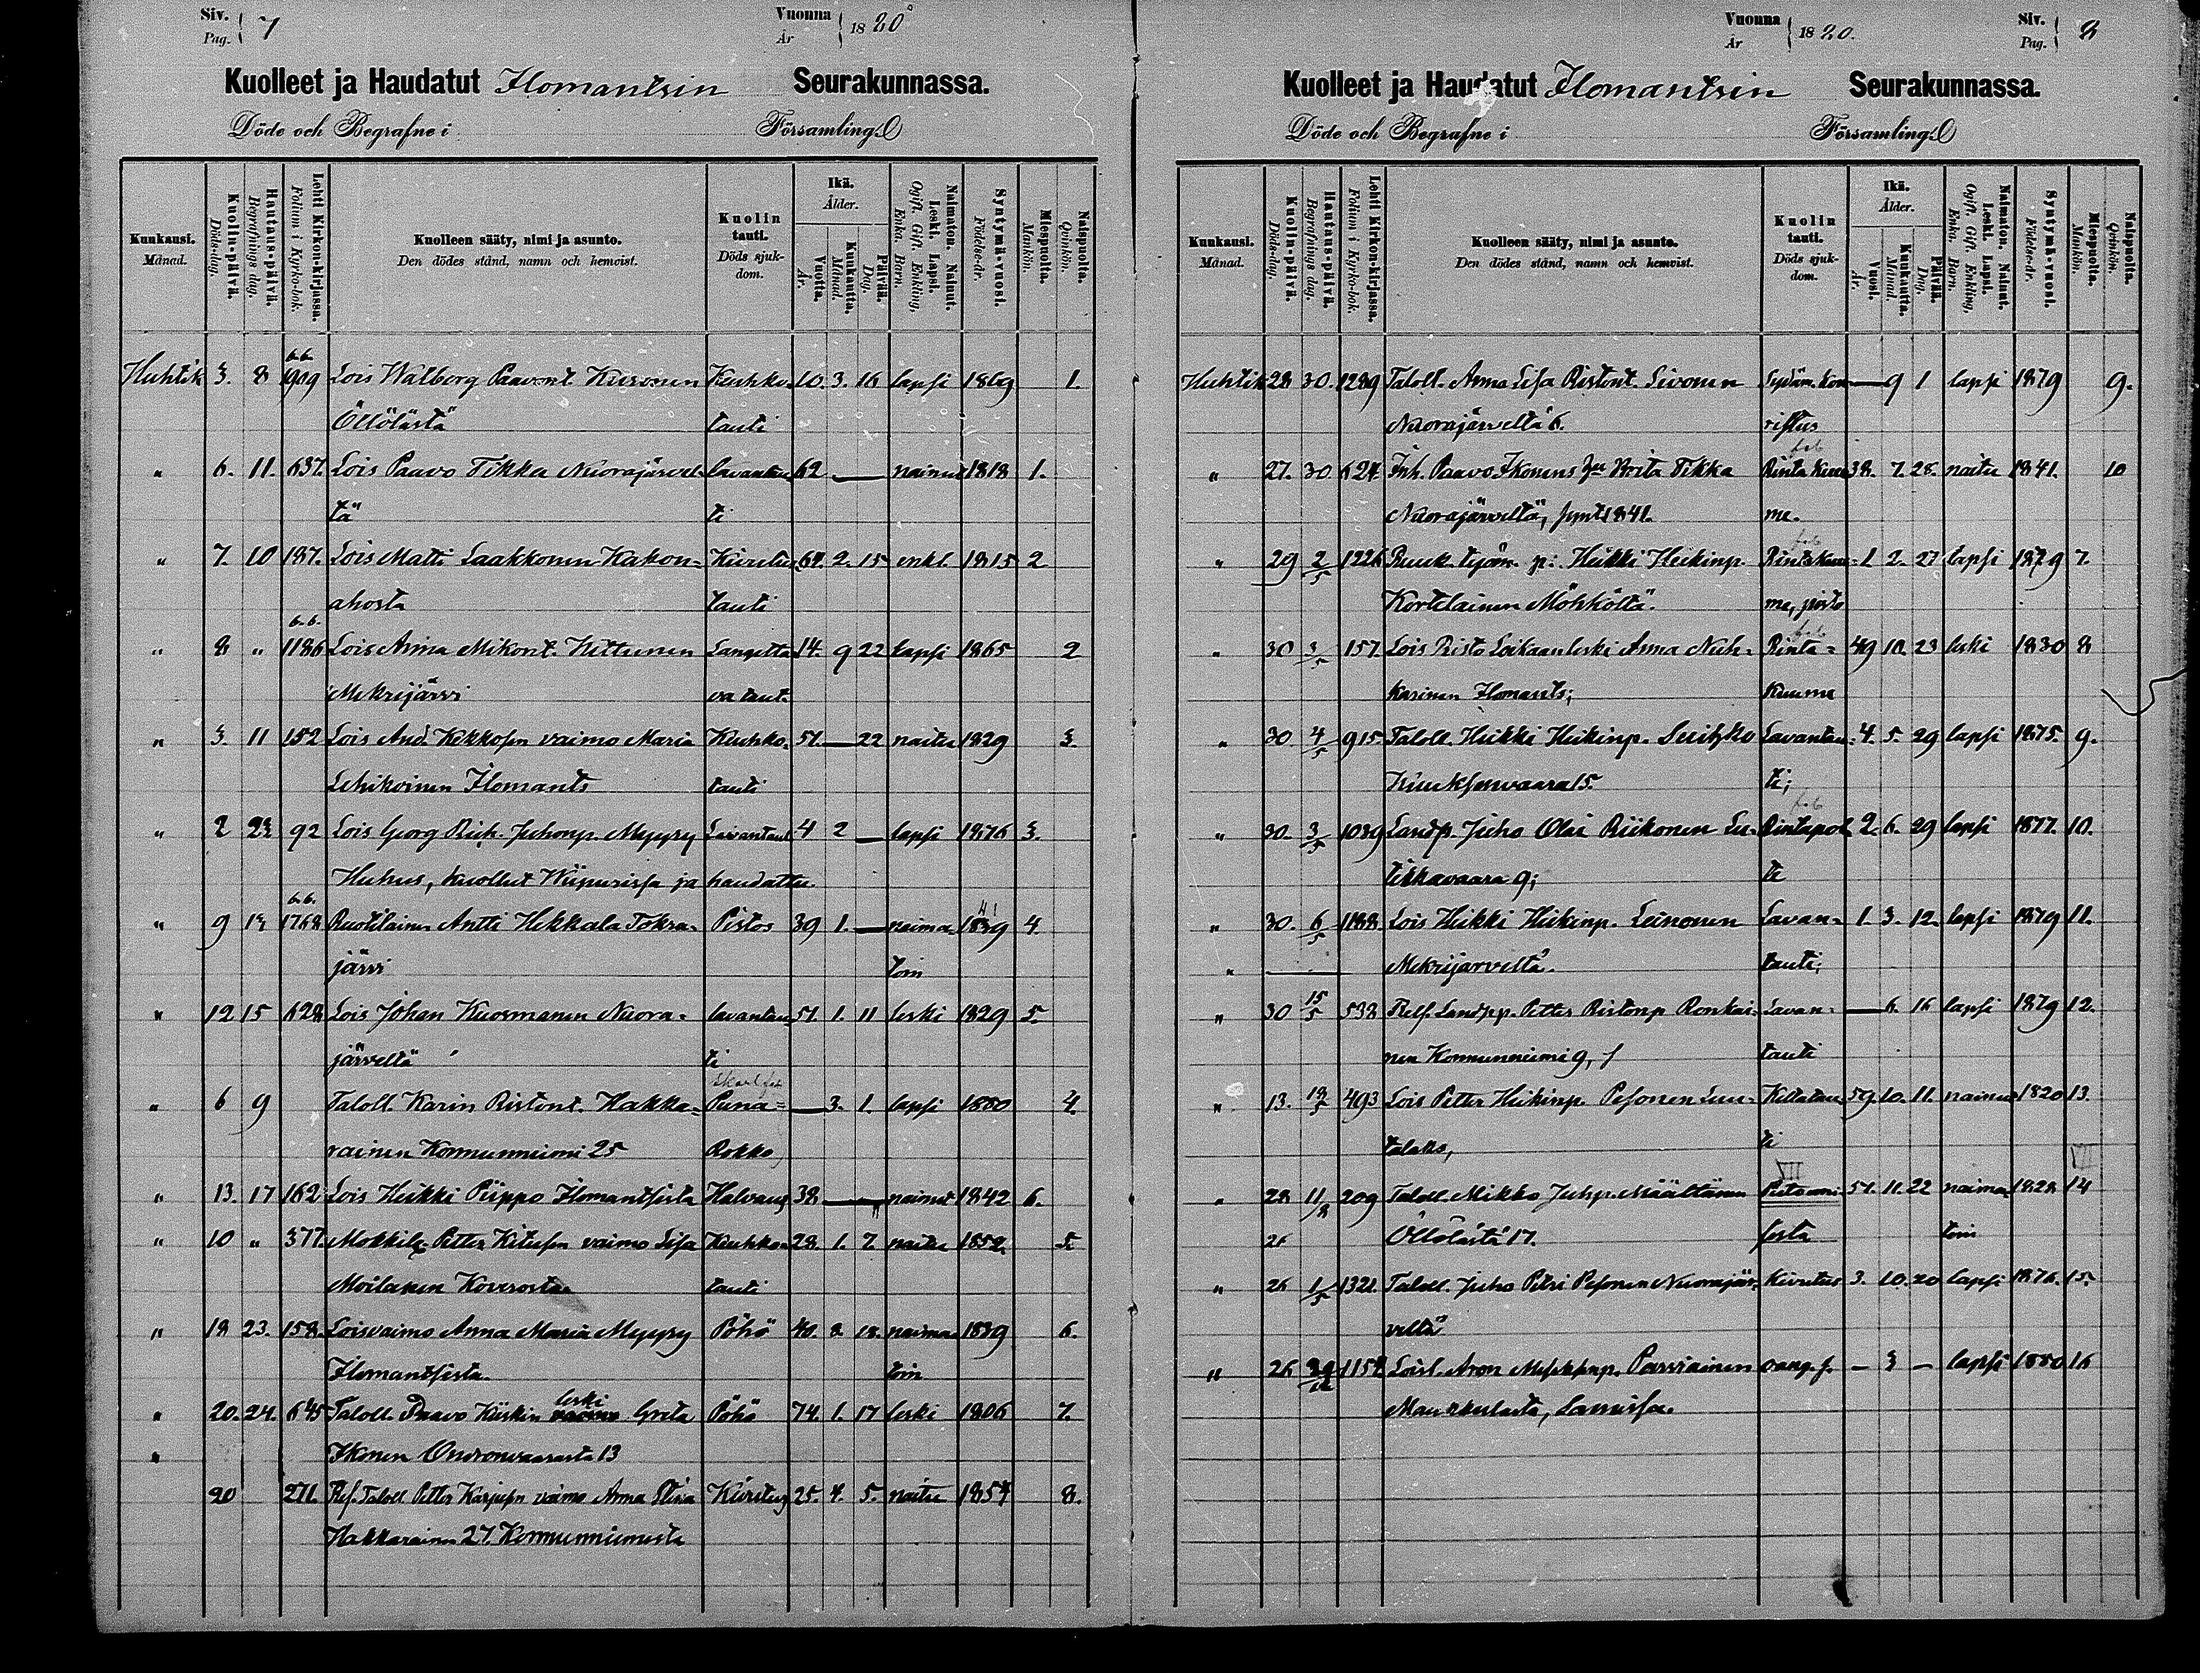 Siv. Pag. 7 Vuonna År 1880
Kuolleet ja Haudatut Ilomantsin Seurakunnassa.
Döde och Begrafne i Församling.
Kuukausi. Månad. Kuolin-päivä. Döds-dag. Hautaus-päivä. Begrafnings dag. Lehti Kirkon-kirjassa. Folium i Kyrko-bok. Kuolleen sääty, nimi ja asunto. Den dödes stånd, namn och hemvist. Kuolin tauti. Döds sjukdom. Ikä. Ålder. Vuotta. År. Kuukautta. Månad. Päivää. Dag. Naimaton. Nainut. Leski. Lapsi. Ogift. Gift. Enkling. Enka. Barn. Syntymä-vuosi. Födelse-år. Miespuolta. Mankön. Naispuolta. Qvinkön.
b.b.
Huhtik 3. 8 909 Lois Walborg Paavont. Kuronen Keuhko- 10. 3. 16 lapsi 1869 1.
Öllölästä tauti
" 6. 11. 637. Lois Paavo Tikka Nuorajärvel- lavantau 62 — nainut 1818 1.
tä ti
" 7. 10 187. Lois Matti Laakkonen Kakon- Kuretus 64. 2. 15 enkl. 1815 2
ahosta tauti
b.b.
" 8 " 1186 Lois Anna Mikont. Hettunen Langetta 14. 9 22 lapsi 1865 2
Mekrijärvi va taut.
" 3. 11 152 Lois And. Kokkosen vaimo Maria Keuhko- 51. — 22 naitu 1829 3.
Lehikoinen Ilomants tauti
" 2 23 92 Lois Georg Rich. Juhonp. Myyry Lavantaut 4 2 — lapsi 1876 3.
Huhus, kuollut Wiipurissa ja haudattu.
b.b.
" 9 1768 Ruotilainen Antti Hekkala Tokra- Pistos 39 1. — naima- 1839 4.
järvi toin
" 12 15 628 Lois Johan Kuosmanen Nuora- lavantau 51. 1. 11 leski 1829 5.
järveltä ti
" 6 9 Taloll. Karin Ristont. Hakka- Puna- — 3. 1. lapsi 1880 4.
rainen Konnunniemi 25 Rokko
" 13. 17 162 Lois Heikki Piippo Ilomantsista Halvaug 38 — — nainut 1842 6.
" 10 " 377. Mökkil. Petter Kitusen vaimo Lisa Keuhko- 28. 1. 7. naitu 1852 5.
Moilanen Koverosta tauti
" 18 23. 158. Loisvaimo Anna Maria Myyry Pöhö 40. 8. 18. naima 1839 6.
Ilomantsista. toin
" 20. 24. 645 Taloll. Paavo Kiiskin leski Greta Pöhö 74. 1. 17 leski 1806 7.
" Ikonen Ondronvaarasta 13
20 271. Ref. Taloll. Petter Karjusen vaimo Anna Stina Kuristus 25. 4. 5. naitu 1854 8.
Hakkarainen 27. Konnunniemestä
Vuonna År 1880. Siv. Pag. 8
Kuolleet ja Haudatut Ilomantsin Seurakunnassa.
Döde och Begrafne i Församling.
Kuukausi. Månad. Kuolin-päivä. Döds-dag. Hautaus-päivä. Begrafnings dag. Lehti Kirkon-kirjassa. Folium i Kyrko-bok. Kuolleen sääty, nimi ja asunto. Den dödes stånd, namn och hemvist. Kuolin tauti. Döds sjukdom. Ikä. Ålder. Vuosi. År. Kuukautta. Månad. Päivää. Dag. Naimaton. Nainut. Leski. Lapsi. Ogift. Gift. Enkling. Enka. Barn. Syntymä-vuosi. Födelse-år. Miespuolta. Mankön. Naispuolta. Qvinkön.
Huhtik 28 30. 1289 Taloll. Anna Lisa Ristont. Sivonen Sydäm. kou — 9 1 lapsi 1879 9.
Nuorajärveltä 6. ristus
" 27. 30. 624. Inh. Paavo Ikonens Brita Tikka Rinta kuu 38. 7. 28. naitu 1841. 10
Nuorajärveltä, synt 1841. me.
" 29 2/5 1226 Ruuk. työm. p: Heikki Heikinp. Rintakuu- 1 2. 27 lapsi 1879 7.
Kortelainen Möhköltä. me, pisto
" 30 3/5 157. Lois Risto Loikaan leski Anna Nuh- Rinta- 49 10. 23 leski 1830 8
karinen Ilomants; kuume
" 30 4/5 915 Taloll. Heikki Heikinp. Suitzko Lavantau- 4. 5. 29 lapsi 1875. 9.
Kuuksenvaara 15. ti;
" 30. 3/5 1039 Landp. Juho Olai Riikonen Lu- Rintapol 2. 6. 29 lapsi 1877. 10.
tikkavaara 9; te
" 30. 6/5 1188 Lois Heikki Heikinp. Leinonen Lavan- 1. 3. 12. lapsi 1879 11.
" — Mekrijärveltä. tauti;
" 30 15/5 538 Relf. Landpp. Petter Ristonp Ronkai- Lavan- — 6. 16 lapsi 1879 12.
nen Konnunniemi 9, tauti
" 13. 493 Lois Petter Heikinp. Pesonen Luu- Keltatau 59. 10. 11. nainu 1820 13.
talaks, ti
VII VII
" 28 11/8 209 Taloll. Mikko Juhp. Määttänen 51. 11. 22 naima 1828 14
Öllölästä 17. sesta toin
" 26 1/5 1321. Taloll. Juho Petri Pesonen Nuorajär- Kuretus 3. 10. 20 lapsi 1876. 15.
veltä
" 26 1154 Loisl. Aron Parviainen — 3 — lapsi 1880 16